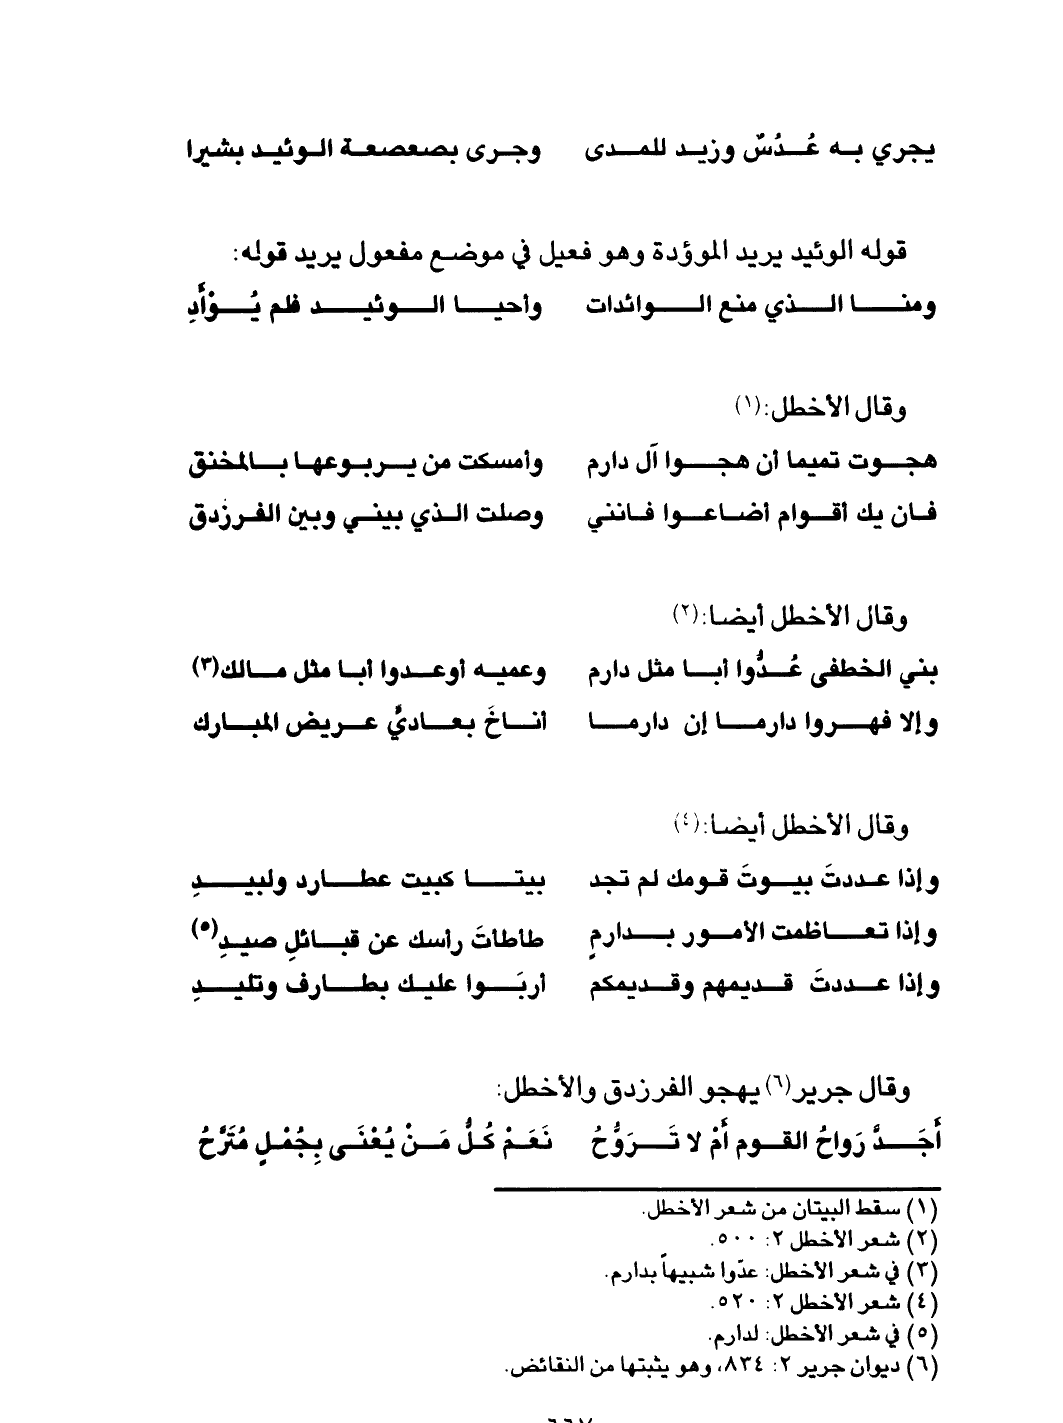 يجري به عُدُسٌ وزيد للمدى وجرى بصعصعة الوئيد بشيرا
قوله الوئيد يريد الموؤدة وهو فعيل في موضع مفعول يريد قوله:
ومنا الذي منع الوائدات وأحيا الوئيد فلم يُوْأَدِ
وقال الأخطل:(١)
هجوت تميما أن هجوا آل دارم وأمسكت من يربوعها بالمخنق
فان يك أقوام أضاعوا فانني وصلت الذي بيني وبين الفرزدق
وقال الأخطل أيضا:(٢)
بني الخطفى عُدُّوا أبا مثل دارم وعميه أوعدوا أبا مثل مالك(٣)
وإلا فهروا دارما إن دارما أناخَ بعاديٍّ عريض المبارك
وقال الأخطل أيضا:(٤)
وإذا عددتَ بيوتَ قومك لم تجد بيتا كبيت عطارد ولبيدِ
وإذا تعاظمت الأمور بدارمٍ طاطاتَ رأسك عن قبائلِ صيدِ(٥)
وإذا عددتَ قديمهم وقديمكم أربَوا عليك بطارف وتليدِ
وقال جرير(٦) يهجو الفرزدق والأخطل:
أَجَدَّ رَواحُ القوم أَمْ لا تَرَوُّحُ نَعَمْ كُلُّ مَنْ يُعْنَى بِجُمْلٍ مُتَرَّحُ
(١) سقط البيتان من شعر الأخطل.
(٢) شعر الأخطل ٢: ٥٠٠.
(٣) في شعر الأخطل: عدّوا شبيهاً بدارم.
(٤) شعر الأخطل ٢: ٥٢٠.
(٥) في شعر الأخطل: لدارم.
(٦) ديوان جرير ٢: ٨٣٤، وهو يثبتها من النقائض.